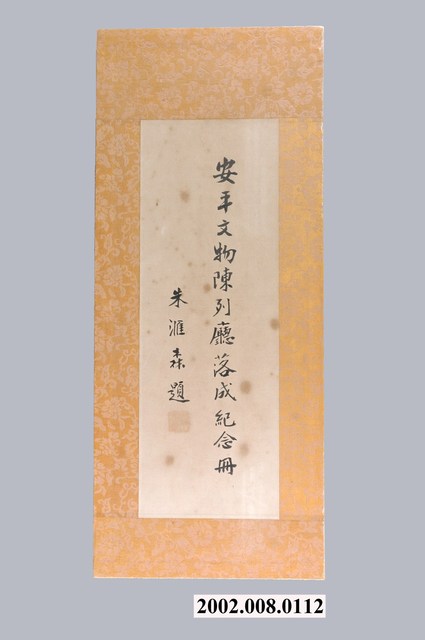 安平文物陳列廳落成紀念冊
朱滙森題
2002.008.0112